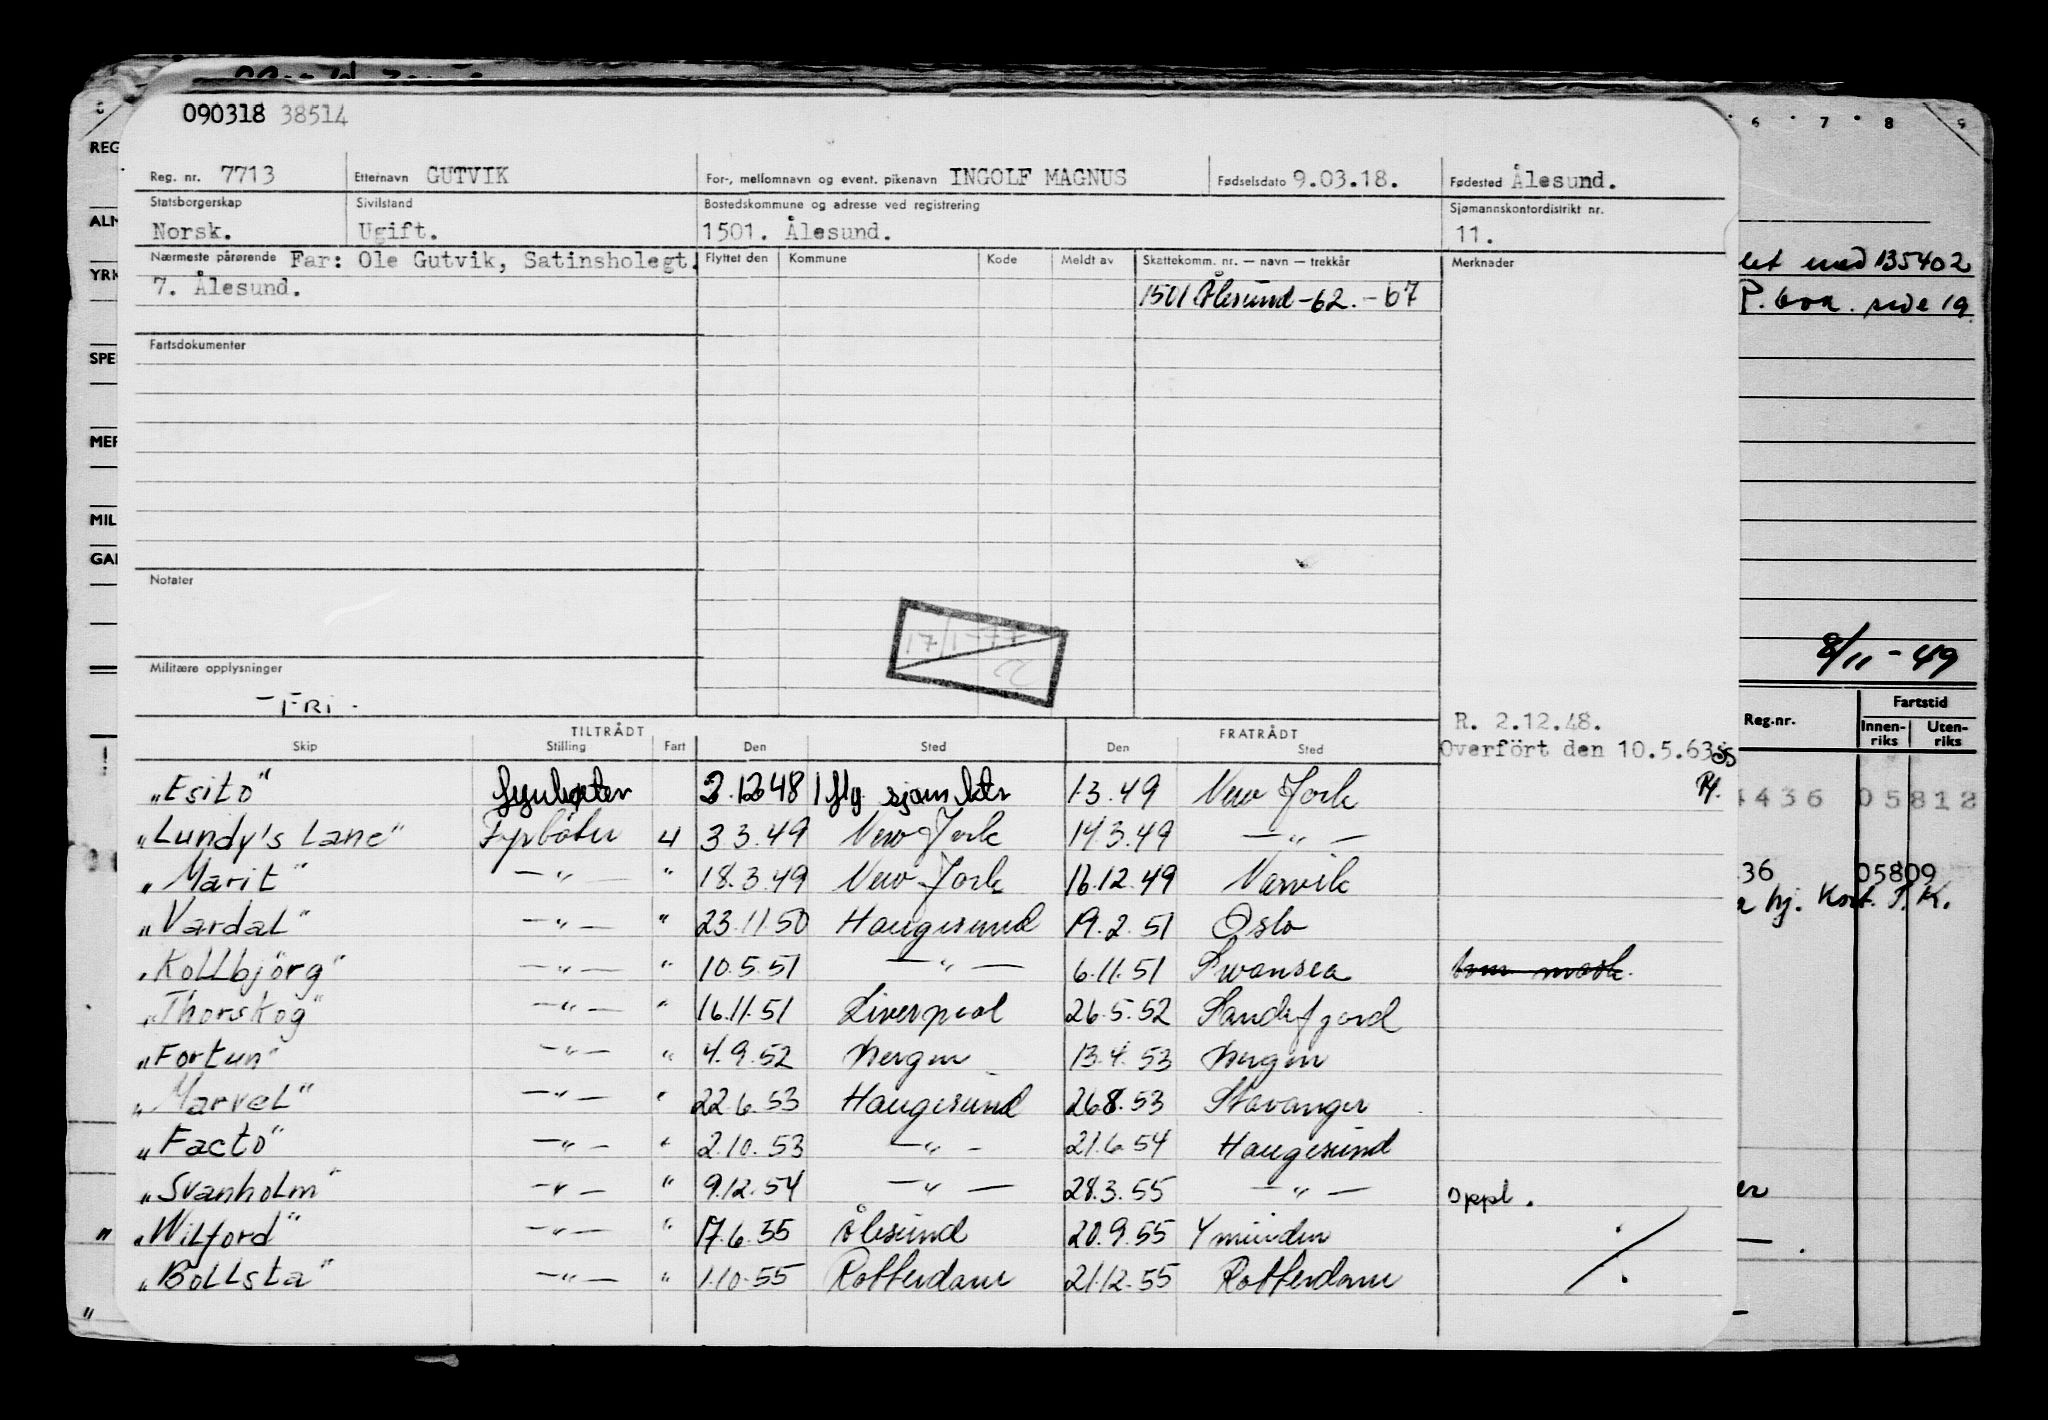 090318 38514
Reg. nr. 7713 Etternavn GUTVIK For-, mellomnavn og event. pikenavn INGOLF MAGNUS Fødselsdato 9.03.18. Fødested Ålesund.
Statsborgerskap Sivilstand Bostedskommune og adresse ved registrering Sjømannskontordistrikt nr.
Norsk. Ugift. 1501. Ålesund. 11.
Nærmeste pårørende Far: Ole Gutvik, Satinsholegt. Flyttet den Kommune Kode Meldt av Skattekomm. nr. — navn — trekkår Merknader
7. Ålesund. 1501 Ålesund -62. -67
Fartsdokumenter
Notater
17/1-77
Militære opplysninger
-FRI-
R. 2.12.48.
Overfört den 10.5.63
TILTRÅDT FRATRÅDT
Skip Stilling Fart Den Sted Den Sted
„Esito" fyrbøter 2.12 48 flg. sjøm ktr 1.3.49 New York
„Lundy's Lane" Fyrbøter 4 3 3.49 New York 14.3.49 —"—
„Marit" —"— " 18.3.49 New York 16.12.49 Narvik
„Vardal" —"— " 23.11.50 Haugesund 19.2.51 Oslo
„Kollbjörg" —"— " 10.5.51 —"— 6.11.51 Swansea
„Thorskog" —"— " 16.11.51 Liverpool 26.5.52 Sandefjord
„Fortun" —"— " 4.9.52 Bergen 13.4.53 Bergen
„Marvel" —"— " 22.6.53 Haugesund 26.8.53 Stavanger
„Facto" —"— " 2.10.53 —"— 21.6.54 Haugesund
„Svanholm" —"— " 9.12.54 —"— 28.3.55 —"— oppl.
„Wilford" —"— " 17.6.55 Ålesund 20.9.55 Ymuiden
„Bollsta" —"— " 1.10.55 Rotterdam 21.12.55 Rotterdam
REG
ALM
YRK
SPE
MER
MIL
GAR
6 7 8 9
med 135402
side 19
8/11-49
Reg.nr. Fartstid
Innen-riks Uten-riks
4436 05812
36 05809
hj. Kort.